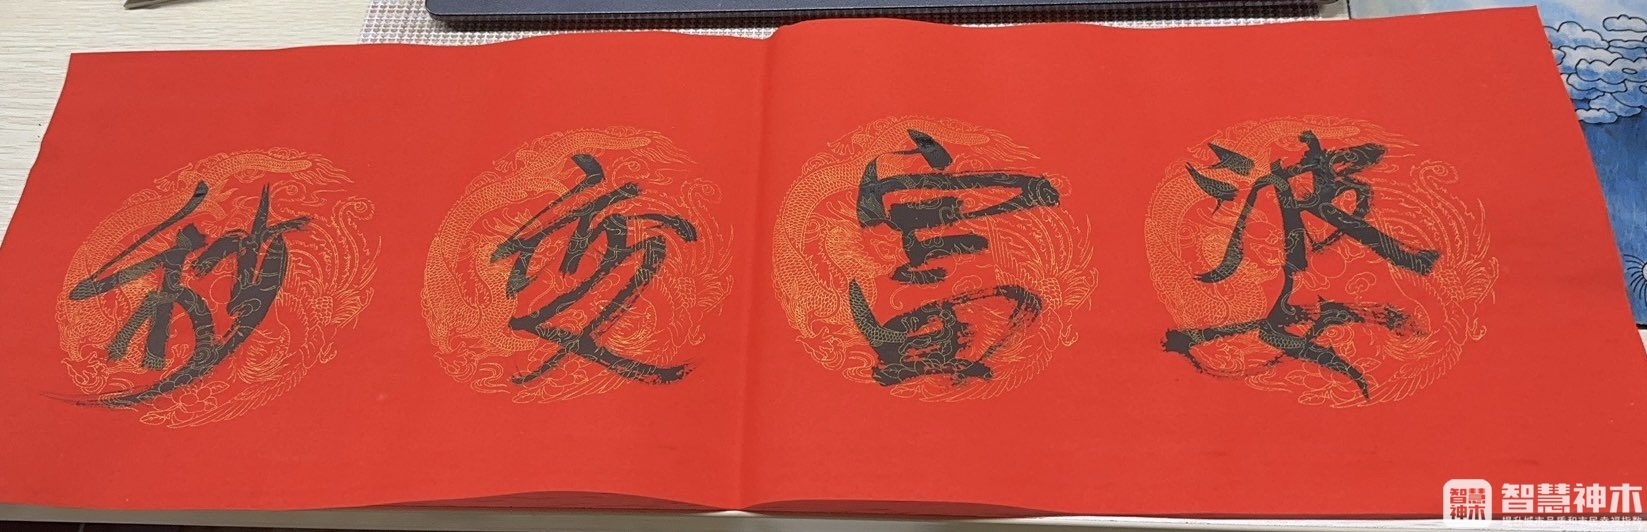 秒变富婆
智慧
神木
智慧神木